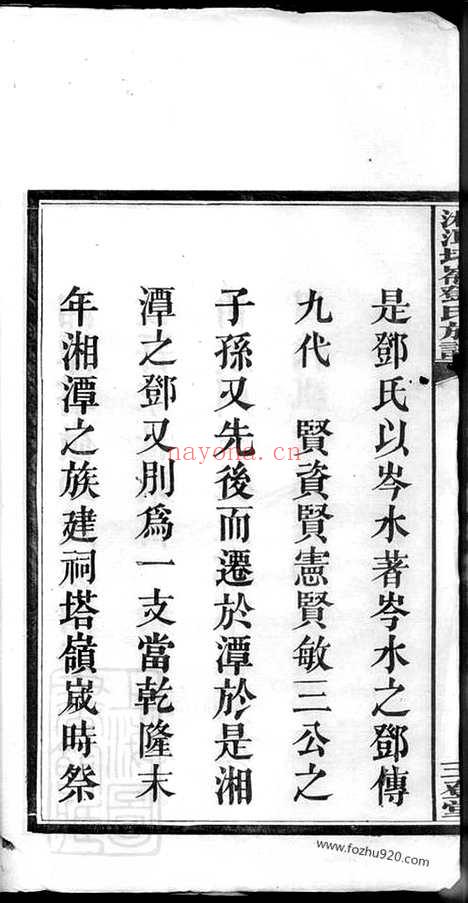 湘潭塔嶺鄧氏族譜
是鄧氏以岑水著岑水之鄧傳
九代　賢資賢憲賢敏三公之
子孫又先後而遷於潭於是湘
潭之鄧又別為一支當乾隆末
年湘潭之族建祠塔嶺嵗時祭
nayona.cn
www.fozhu920.com